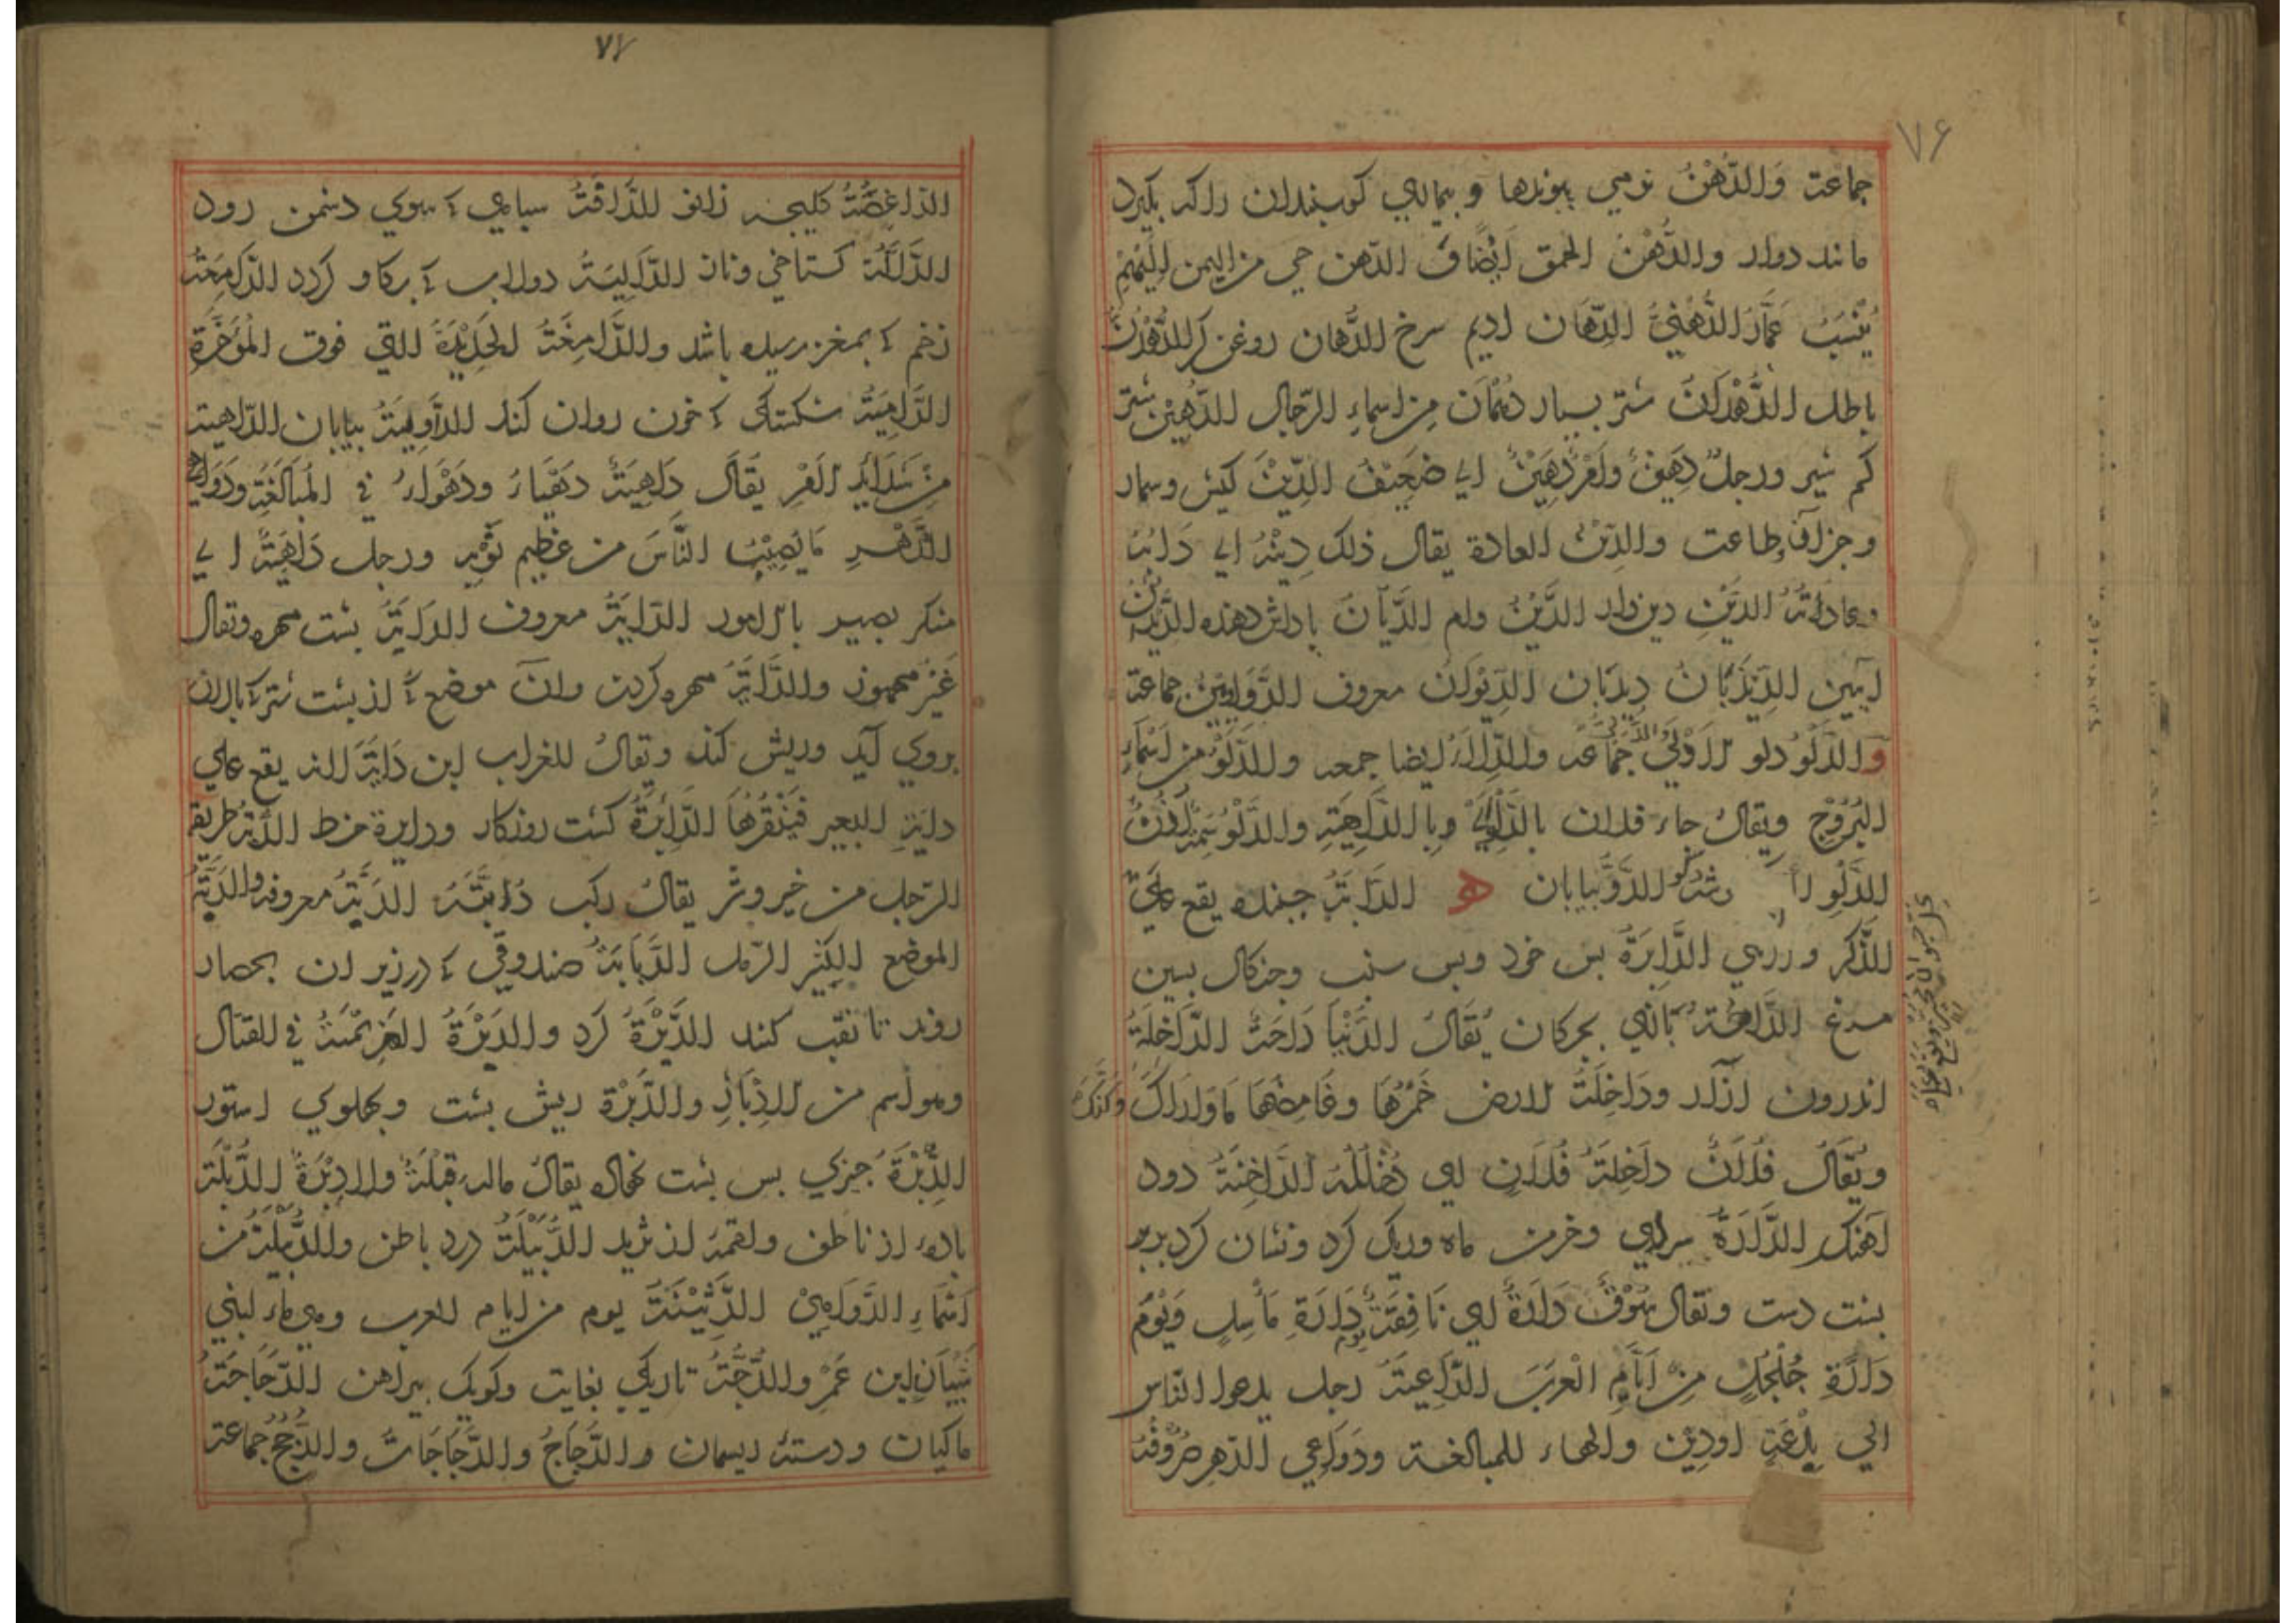 ۷۶
جماعة وَالدُّهْنُ نرمي بپوندها و بيماري كوسبندان را كه بكيرد
مانند دوار والدُّهْنُ الحمق اَيْضًا الدّهن حي من اليمن اِلَيْهِمْ
يُنْسَبُ عَمَّارُ الدُّهْنِيُّ الدِّهَان اديم سرخ الدُّهان روغن كر الدُّهْدُنُّ
باطل الدَّهْدَانُ شتر بسيار دُهْمَان مِن اسماءِ الرّجال الدَّهِيْنُ شتر
كم شير ورجلٌ دَهِيْنٌ وَاَمْرٌ دَهِيْنٌ اي ضَعِيْفٌ الدِّيْنُ كيش وسمار
وجزا و طاعت والدّيْنُ العادة يقال ذلك دِيْنُهُ اي دَابُهُ
وعاداتُهُ الدَيِّنُ دين دار الدَّيْنُ وام الدَّيَّانُ پاداش دهنده
ايين الدِّيْدَبَانُ دِيدَبَان الدِّيْوَانُ معروف الدَّوَاوِيْنُ جماعة
و الدَّلْوُ دلو الاَدْلِيْ جَمَاعَة والدِّلاءُ ايضا جمعه والدَّلْوُ من اَسْمَاءِ
البُرُوْجِ ويقالُ جاء فلان بالدَّلْوِ وبِا الدَّاهِيَةِ والدَّلْوُ
الدَّوُّ بيابان ه الدَّابَّةُ جنبنده يقع عَلَي
الذَّكَرِ الدَّابِرَةُ پس خرد وپس سنب وچنكال پسين
مرغ يُقَالُ الدُّنْيَا دَاحَةٌ الدَّاخِلَةُ
اندرون ازار ودَاخِلَةُ الارض خَمْرُهَا وغَامِضُهَا
ويُقَالُ فُلاَنٌ دَاخِلَةُ فُلاَنٍ اي دُخْلُلُهُ الدَّاجِنَةُ دود
آهنك الدَّارَةُ سراي وخرمن ماه وريك كرد ونشان كرد برو
دست ويقال سُوْقٌ دَارَةٌ اي نَافِقَةٌ دَارَةِ مَأْسِلٍ وَيَوْمُ
دَارَةِ جُلْجُلٍ مِنْ اَيَّامِ الْعَرَبِ الدَّاعِيَةُ رجل يدعوا النّاس
الي بِدْعَةٍ اودِيْنٍ والهاء للمبالغة ودَوَاعِي الدّهرِ صُرُوْفُهُ
۷۷
الدَّاغِصَةُ كليجه زانو الدَّافَّةُ سپاهي كه بسوي دشمن رود
الدَّالَّةُ كستاخي وناز الدَّالِيَةُ دولاب كه بركاو كردد الدَّامِغَةُ
زخم كه بمغز رسيده باشد والدَّامِغَةُ الحَدِيْدَةُ التي فوق المُؤَخَّرَةِ
الدَّامِيَةُ شكستكي كه خون روان كند الدَّاوِيَةُ بيابان الدّاهية
مِنْ شَدَائِدِ الدّهْرِ يُقَالُ دَاهِيَةٌ دَهْيَاءُ ودَهْوَاءُ فِي الْمُبَالَغَةِ ودَوَاهِي
الدَّهْرِ مَا يُصِيْبُ النَّاسَ من عَظِيمِ نُوَبِهِ ورجل دَاهِيَةٌ اي
منكر بصير بالامور الدَّايَةُ معروف الدَّايَةُ پشت مهره ويقال
غَيْرُ مهموز والدَّايَةُ مهره كردن وان موضع كه از پشت شتر كه پالان
بروي آيد وريش كند ويقالُ للغراب ابن دَايَةَ لانه يقع علي
دايَةِ البعير فيَنْقُرُهَا الدَّائِرَةُ كشت روزكار ودايرة خط الدُّبَّةُ طريقة
الرّجل من خير وشر يقالُ ركب دُبَّتَهُ الدَبَّةُ معروفة والدَبَّةُ
الموضع الكَثِيْر الرّمل الدَّبَّابَةُ صندوقي كه در زير ان بحصار
روند تا نقب كنند الدَّبْرَةُ كرد والدَبْرَةُ الهَزِيْمَةُ في القتال
وهو اسم من الاِدْبَارِ والدَّبَرَة ريش پشت وپهلوي استور
الدِّبْرَةُ چيزي پس پشت يقالُ ماله قِبْلَةٌ ولا دِبْرَةٌ الدُّبْلَةُ
پاره از ناطف ولقمه از ثريد الدُّبَيْلَةُ درد باطن والدُّبَيْلَةُ من
اَسْمَاءِ الدَّوَاهِيْ الدَّثِيْنَةُ يوم من ايام العرب وهي ماء لبني
سَيَّارِ ابن عَمْرٍ والدُّجَّةُ تاريكي بغايت وكويك پيراهن الدَّجَاجَةُ
ماكيان ودسته ريسمان والدَّجَاجُ والدَّجَاجَاتُ والدُّجُجُ جماعة